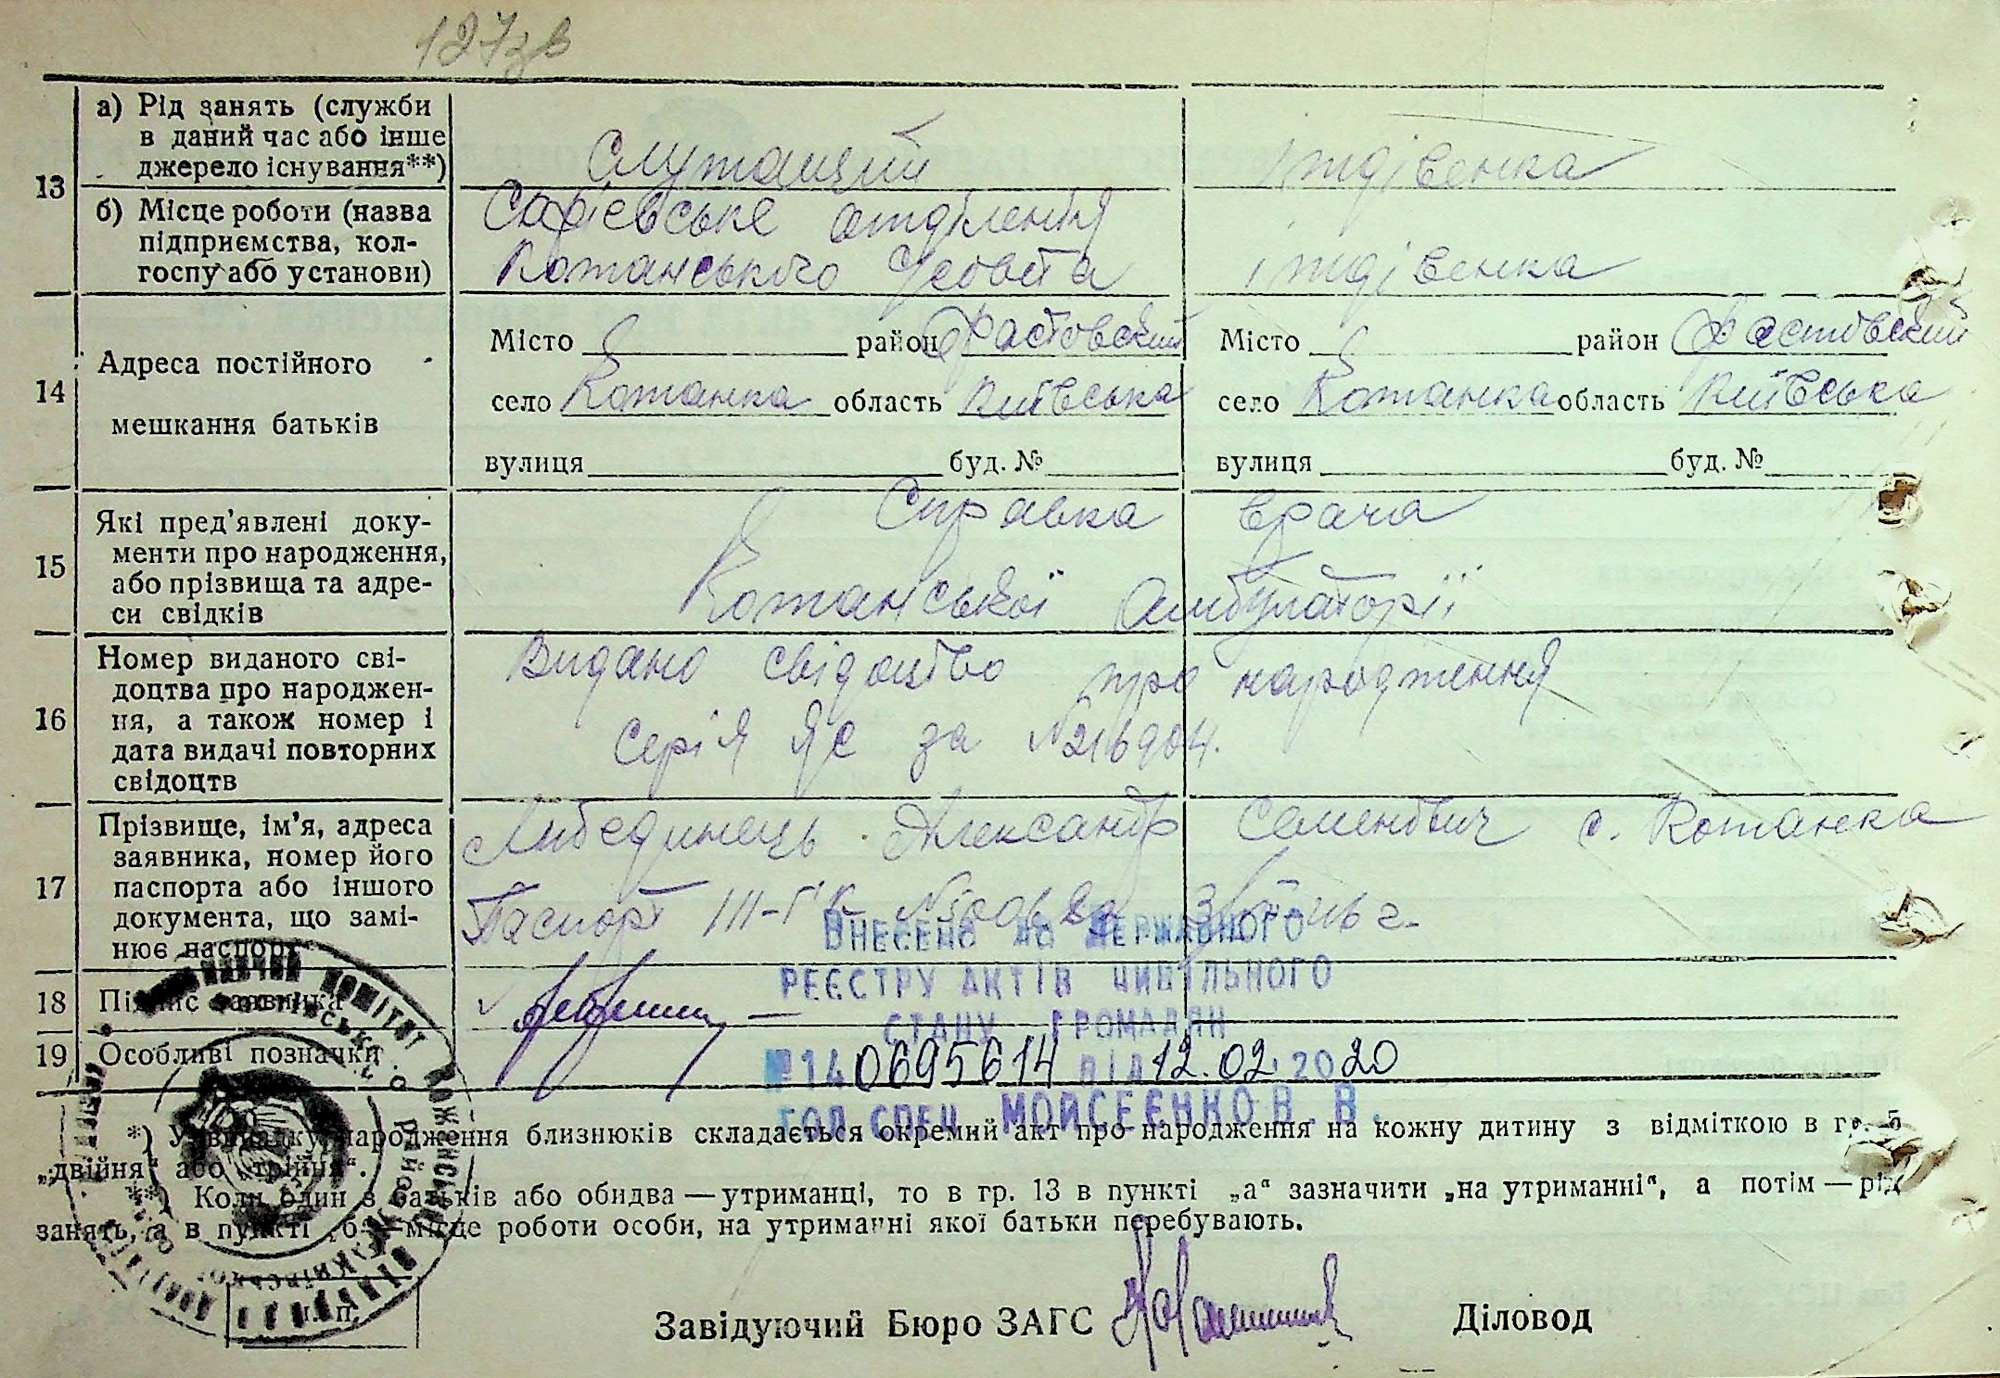 127зв
13
а) Рід занять (служби
в даний час або інше
джерело існування**)
Служащий
іждівенка
б) Місце роботи (назва
підприємства, кол-
госпу або установи)
Софіевське отділення
Кожанського
іждівенка
14
Адреса постійного
мешкання батьків
Місто район Фастовский
село Кожанка область Київська
вулиця буд. №
Місто район Фастовский
село Кожанка область Київська
вулиця буд. №
15
Які пред'явлені доку-
менти про народження,
або прізвища та адре-
си свідків
Справка врача
Кожанської амбулаторії
16
Номер виданого сві-
доцтва про народжен-
ня, а також номер і
дата видачі повторних
свідоцтв
Видано свідоцтво про народження
серія ЯС за №216904.
17
Прізвище, ім'я, адреса
заявника, номер його
паспорта або іншого
документа, що замі-
нює паспорт
Лебединець Александр Семенович с. Кожанка
Паспорт III-ГК
18
Підпис заявника
19
Особливі позначки
ВНЕСЕНО ДО ДЕРЖАВНОГО
РЕЄСТРУ АКТІВ ЦИВІЛЬНОГО
СТАНУ ГРОМАДЯН
№140695614 ВІД 12.02 2020
ГОЛ СПЕЦ МОЙСЕЄНКО В. В.
*) У випадку народження близнюків складається окремий акт про народження на кожну дитину з відміткою в гр. 5
„двійня“ або „трійня“.
**) Коли один з батьків або обидва — утриманці, то в гр. 13 в пункті „а“ зазначити „на утриманні“, а потім — рід
занять, а в пункті „б“ — місце роботи особи, на утриманні якої батьки перебувають.
М. П.
Завідуючий Бюро ЗАГС
Діловод